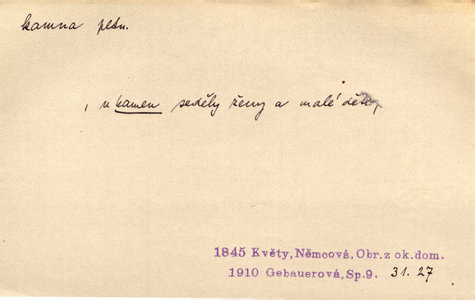 kamna pltn.
, u kamen seděly ženy a malé děti,
1845 Květy, Němcová, Obr. z ok. dom.
1910 Gebauerová, Sp. 9. 31. 27